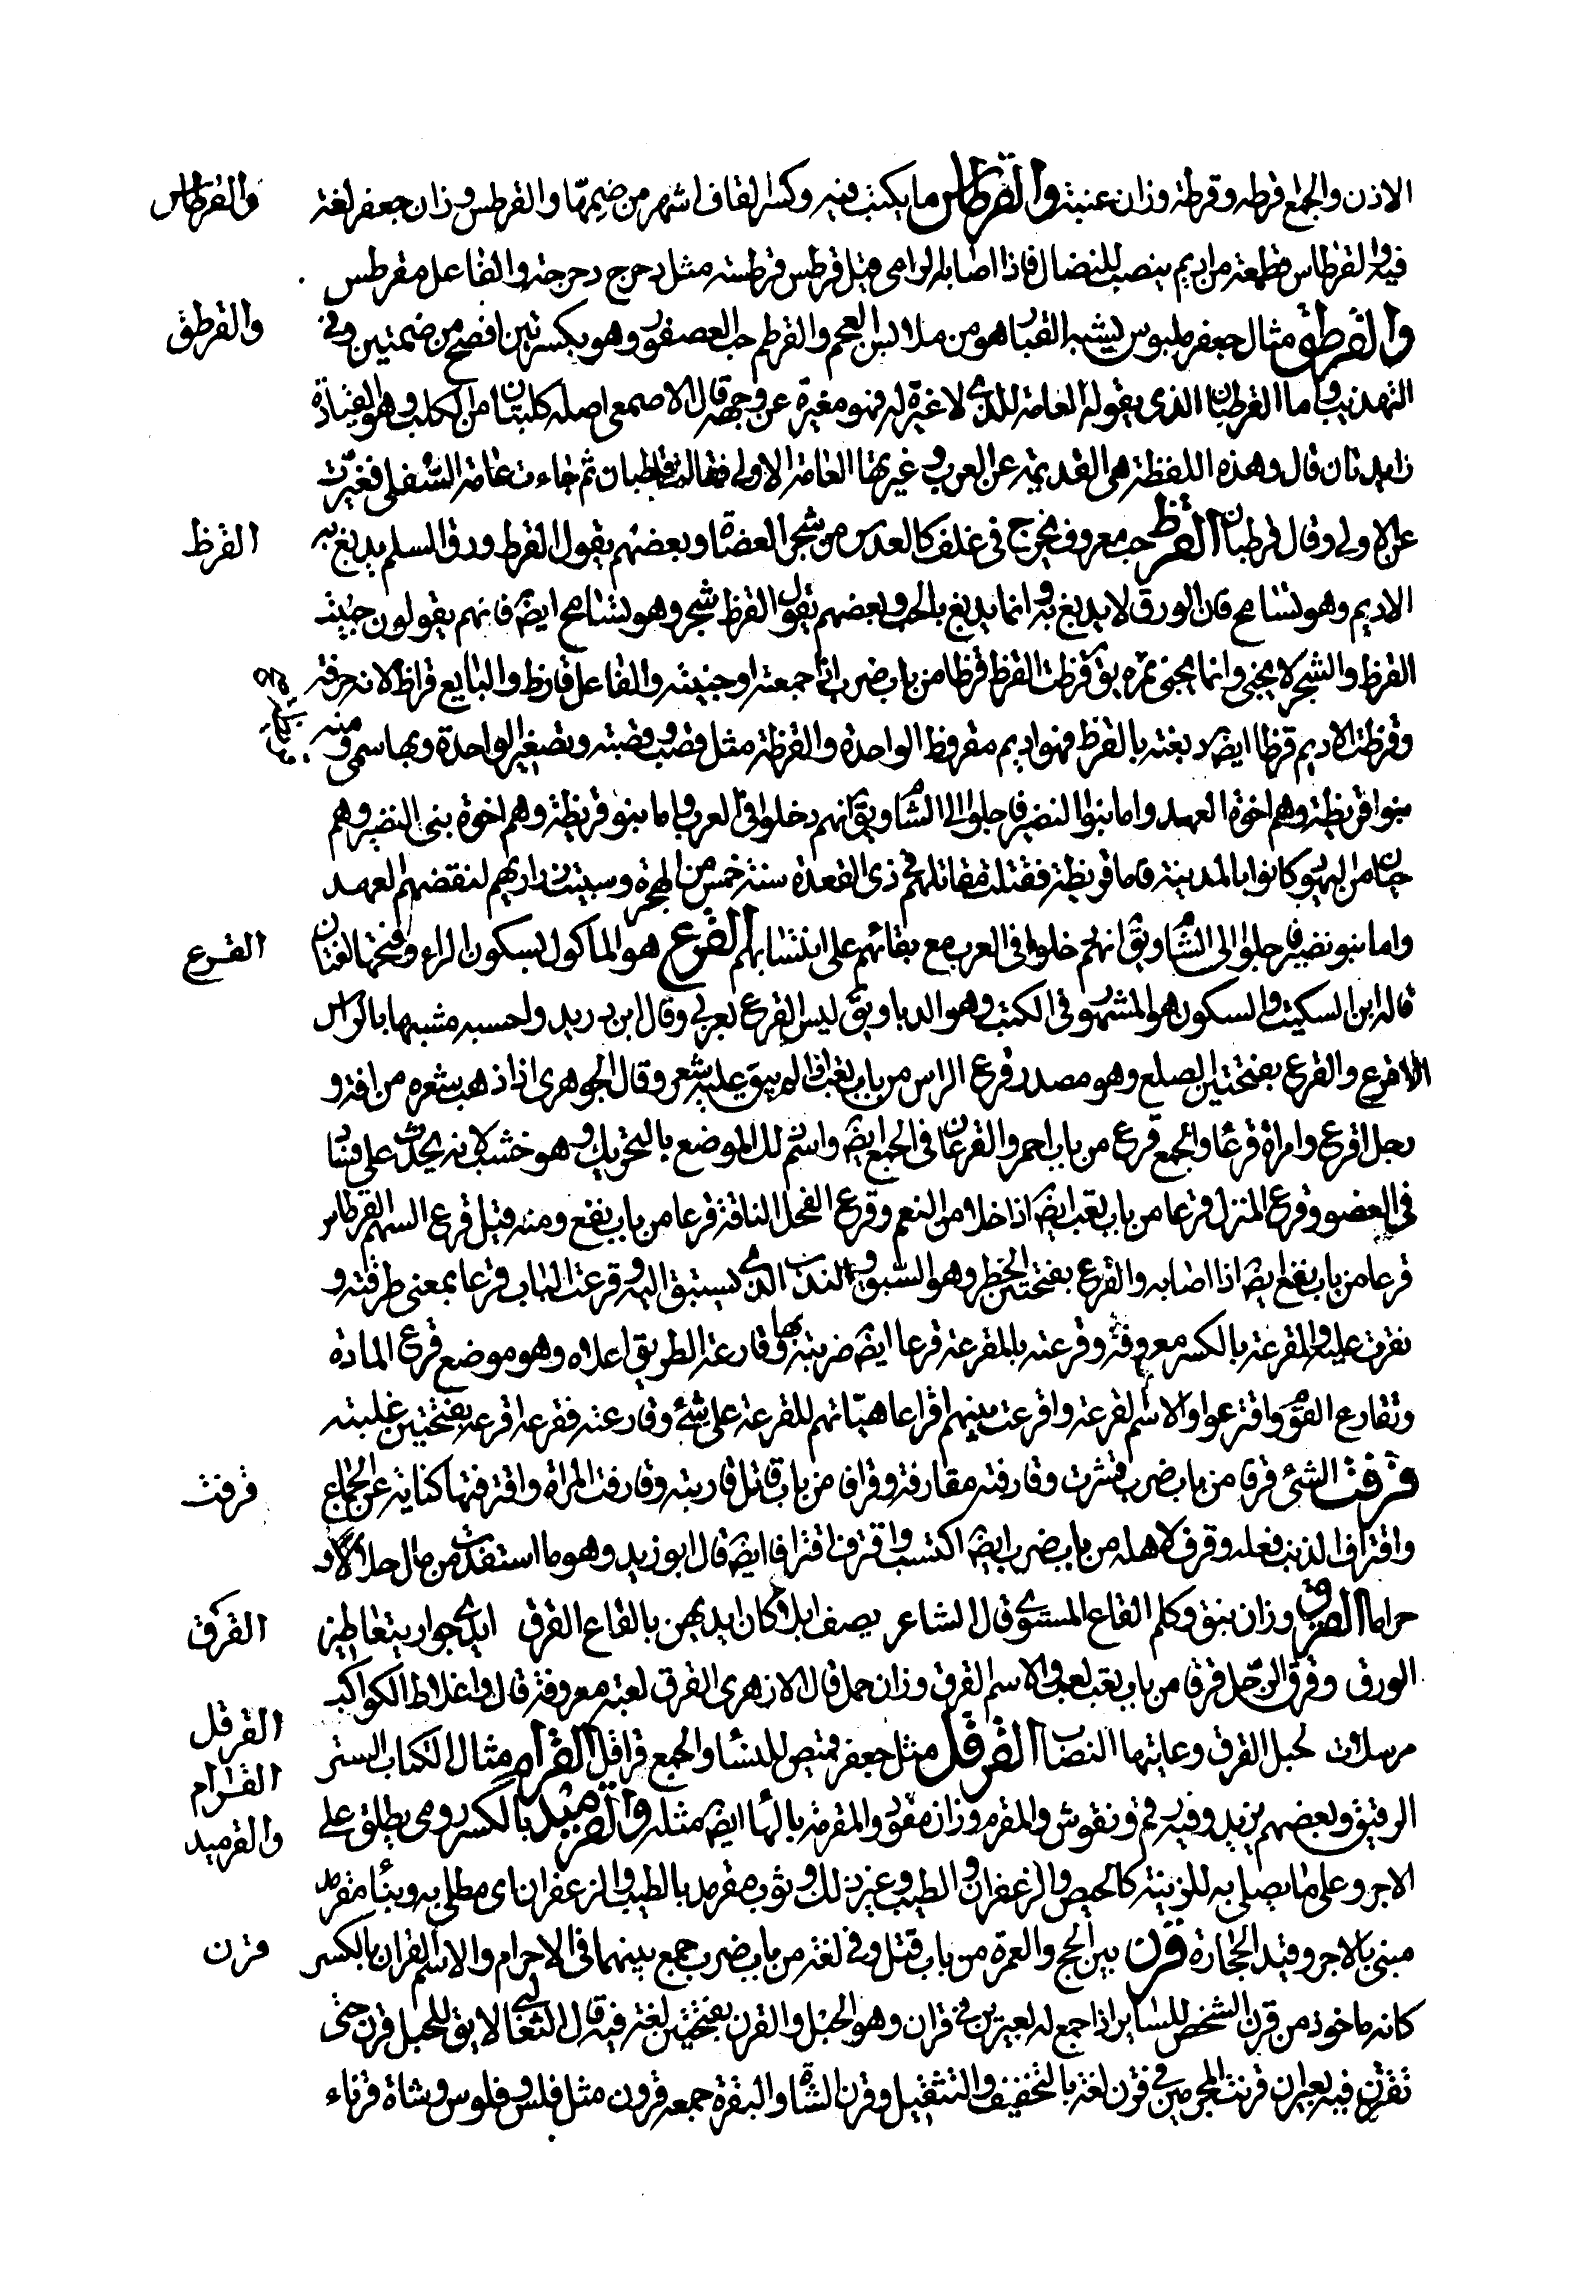 الاذن والجمع قرطه وقرطة وزان عنبة والقرطاس ما يكتب فيه وكسر القاف اشهر من ضمها والقرطس وزان جعفر لغة
والقرطاس
فيه والقرطاس قطعة من اديم ينصب للنضال فاذا اصابه الرامى قيل قرطس قرطسة مثل دحرج دحرجة والفاعل مقرطس
والقرطق مثال جعفر ملبوس يشبه القباء هو من ملابس العجم والقرطم حب العصفر وهو بكسرتين افصح من ضمتين وفى
والقرطق
التهذيب واما القرطبان الذى يقوله العامة للذى لا غيرة له فهو مغيرة عن وجهه قال الاصمعى اصله كلتبان من الكلب وهو القيادة
زايدتان قال وهذه اللفظة هى القديمة عن العرب وغيرتها العامة الاولى فقالت قلطبان ثم جاءت عامة السفلى فغيرت
على الاولى وقال قرطبان القرظ حب معروف يخرج فى غلف كالعدس من شجر العضاة وبعضهم يقول القرظ ورق السلم يدبغ به
القرظ
الاديم وهو تسامح فان الورق لا يدبغ به وانما يدبغ بالحب وبعضهم يقول القرظ شجر وهو تسامح ايضا فانهم يقولون جنيت
القرظ والشجر لا يجنى وانما يجنى ثمره يق قرظت القرظ قرظا من باب ضرب اذا جمعته او جنيته والفاعل قارظ والبايع قراظ لانه حرفة
وقرظت الاديم قرظا ايضا دبغته بالقرظ فهو اديم مقروظ الواحدة والقرظة مثل قصب وقصبة وتصغير الواحدة وبها سمى ومنه
بنوا قريظة وهم اخوة العهد واما بنوا النضير فاجلوا الى الشام ويق انهم دخلوا فى العرب واما بنو قريظة وهم اخوة بنى النضير وهم
حيان من اليهود كانوا بالمدينة فاما قريظة فقتلت مقاتلهم فى ذى القعدة سنة خمس من الهجرة وسبيت ذراريهم لنقضهم العهد
واما بنو نضير فاجلوا الى الشام ويق انهم دخلوا فى العرب مع بقائهم على انتسابهم القرع هو الماكول بسكون الراء وفتحها لغتان
القرع
قاله ابن السكيت والسكون هو المشهور فى الكتب وهو الدبا ويق ليس القرع بعربى وقال ابن دريد واحسبه مشبها بالراس
الاقرع والقرع بفتحتين الصلع وهو مصدر قرع الراس من باب تعب اذا لم يبق عليه شعر وقال الجوهرى اذا ذهب شعره من افة و
رجل اقرع وامراة قرعا والجمع قرع من باب احمر والقرعان فى الجمع ايضا واسم ذلك الموضع بالتحريك وهو خشب لانه يحدث على فساد
فى العضو وقرع المنزل قرعا من باب تعب ايضا اذا خلا من النعم وقرع الفحل الناقة قرعا من باب نفع ومنه قيل قرع السهم القرطاس
قرعا من باب نفع ايضا اذا اصابه والقرع بفتحتين الخطر وهو السبق والندب الذى يستبق اليه وقرعت الباب قرعا بمعنى طرقته و
نقرت عليه والمقرعة بالكسر معروفة وقرعته بالمقرعة قرعا ايضا ضربته بها وقارعة الطريق اعلاه وهو موضع قرع المارة
وتقارع القوم واقترعوا والاسم القرعة واقرعت بينهم اقراعا هياتهم للقرعة على شئ وقارعته فقرعته اقرعه بفتحتين غلبته
قرفت الشئ قرفا من باب ضرب قشرت وقارفته مقارفة وقرافا من باب قاتل قاربته وقارفت المراة واقترفتها كناية عن الجماع
قرفت
واقتراف الذنب فعله وقرف لاهله من باب ضرب ايضا اكتسب واقترف اقترافا ايضا قال ابو زيد وهو ما استفدت من مال حلالا او
حراما القرق وزان نبق وكلم القاع المستوى قال الشاعر يصف ابلا كان ايديهن بالقاع القرق ايدى جوار يتعاطين
القرق
الورق وقرق الرجل قرقا من باب تعب لعب والاسم القرق وزان حمل قال الازهرى القرق لعبة معروفة قال واغلاط الكواكب
مرسلات كحبل القرق وغايتها النصاب القرقل مثل جعفر قميص للنساء والجمع قراقل القرام مثال الكتاب الستر
القرقل
القرام
الرقيق وبعضهم يزيد وفيه رقم ونقوش والمقرم وزان مقود والمقرمة بالهاء ايضا مثله والقرميد بالكسر رومى يطلق على
والقرميد
الاجر وعلى ما يطلى به للزينة كالجص والزعفران والطيب وغير ذلك وثوب مقرمد بالطيب والزعفران اى مطلى به وبناء مقرمد
مبنى بالاجر وقيل الحجارة قرن بين الحج والعمرة من باب قتل وفى لغة من باب ضرب جمع بينهما فى الاحرام والاسم القران بالكسر
قرن
كانه ماخوذ من قرن الشخص للساير اذا جمع له بعيرين فى قران وهو الحبل والقرن بفتحتين لغة فيه قال الثعالبى لا يق للحبل قرن حتى
تقرن فيه بعيران قرنت المجرمين فى قرن لغة بالتخفيف والتثقيل وقرن الشاة والبقرة جمعه قرون مثل فلس وفلوس وشاة قرناء